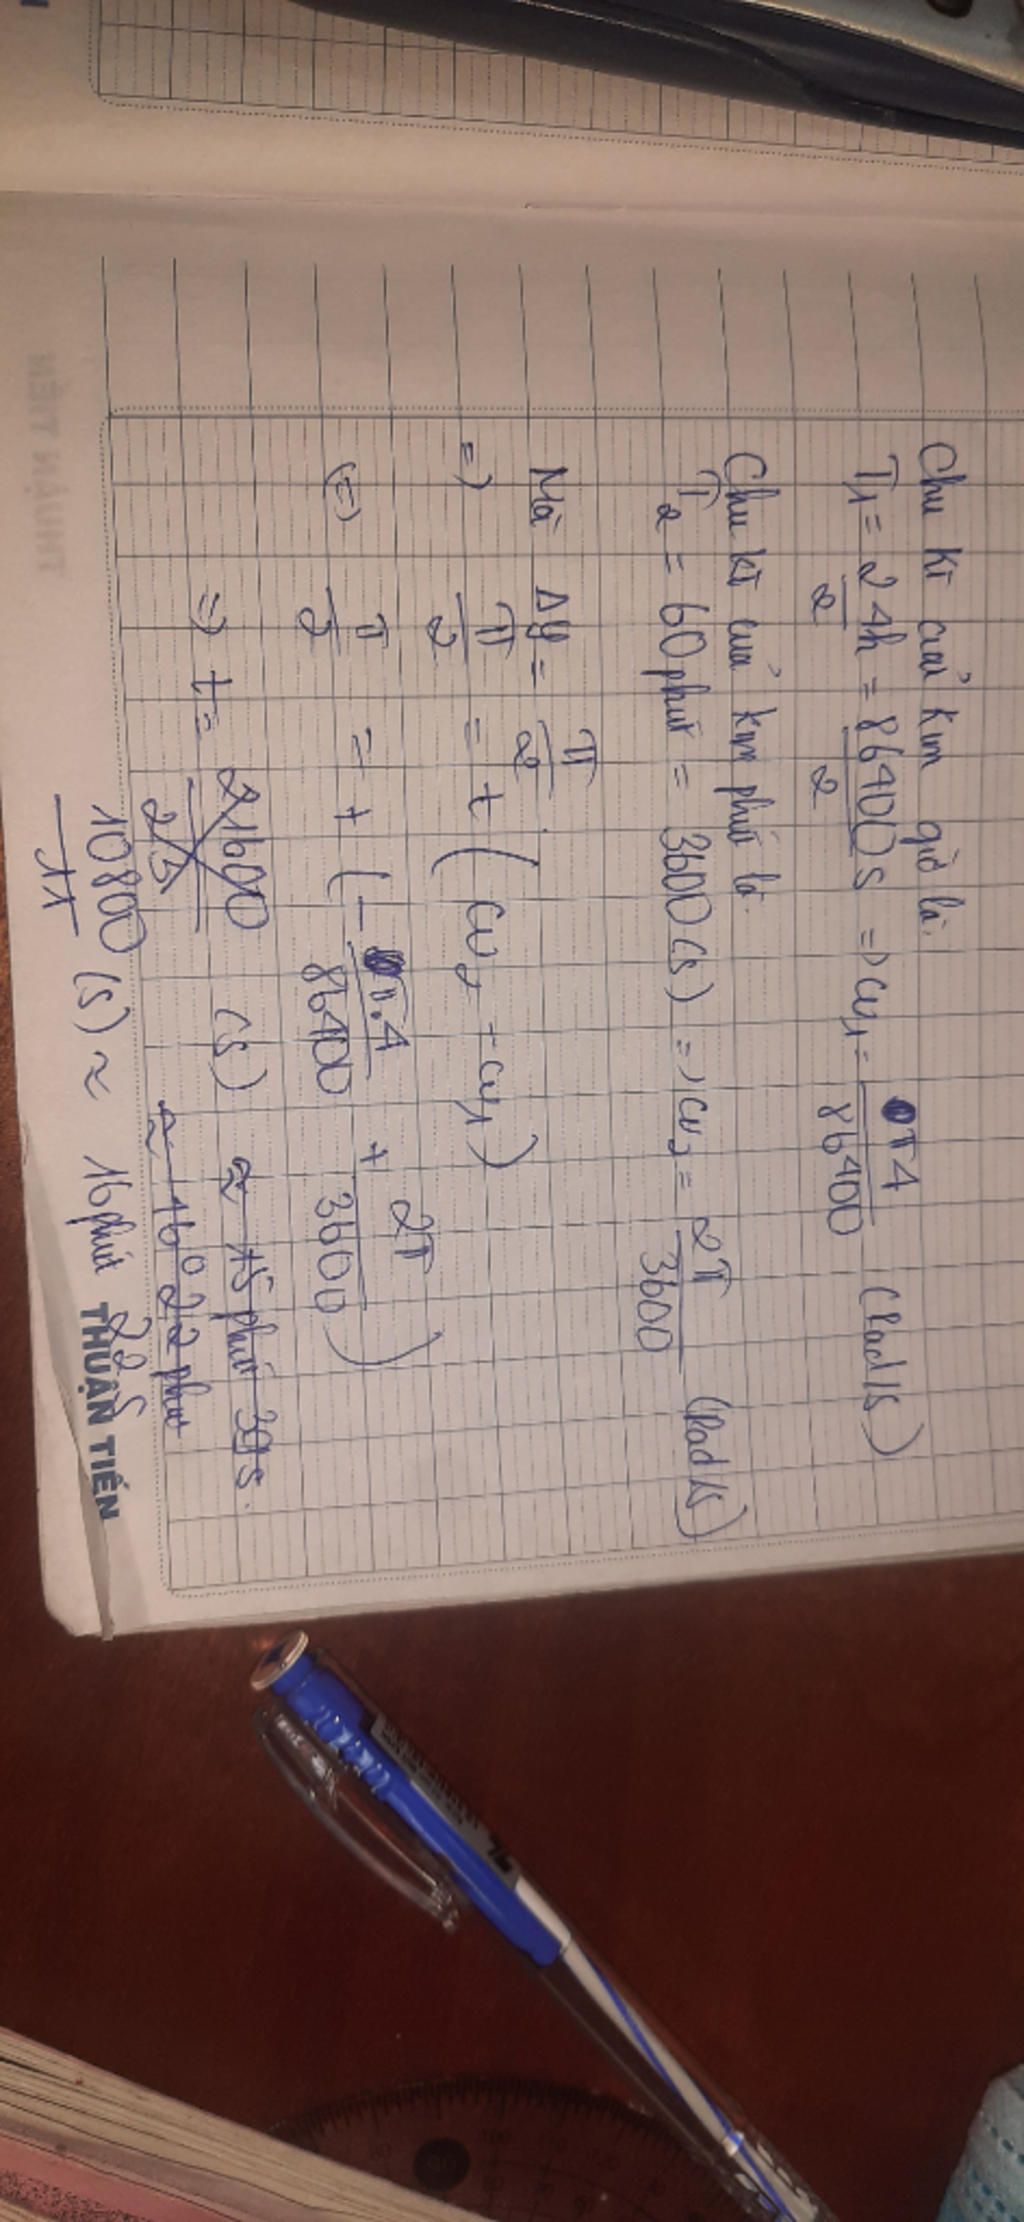 Chu kì của kim giờ là:
T₁ = 24h/2 = 86400s/2 => ω₁ = π4/86400 (Rad/s)
Chu kì của kim phút là
T₂ = 60phút = 3600(s) => ω₂ = 2π/3600 (Rad/s)
Mà Δφ = π/2
=> π/2 = t(ω₂ - ω₁)
(=) π/2 = t(-π.4/86400 + 2π/3600)
=> t = 21600/23 (s) ≈ 15 phút 39s.
≈ 16⁰ 22 phút
10800/11 (s) ≈ 16phút 22s
THUẬN TIẾN
THUẬN TIẾN